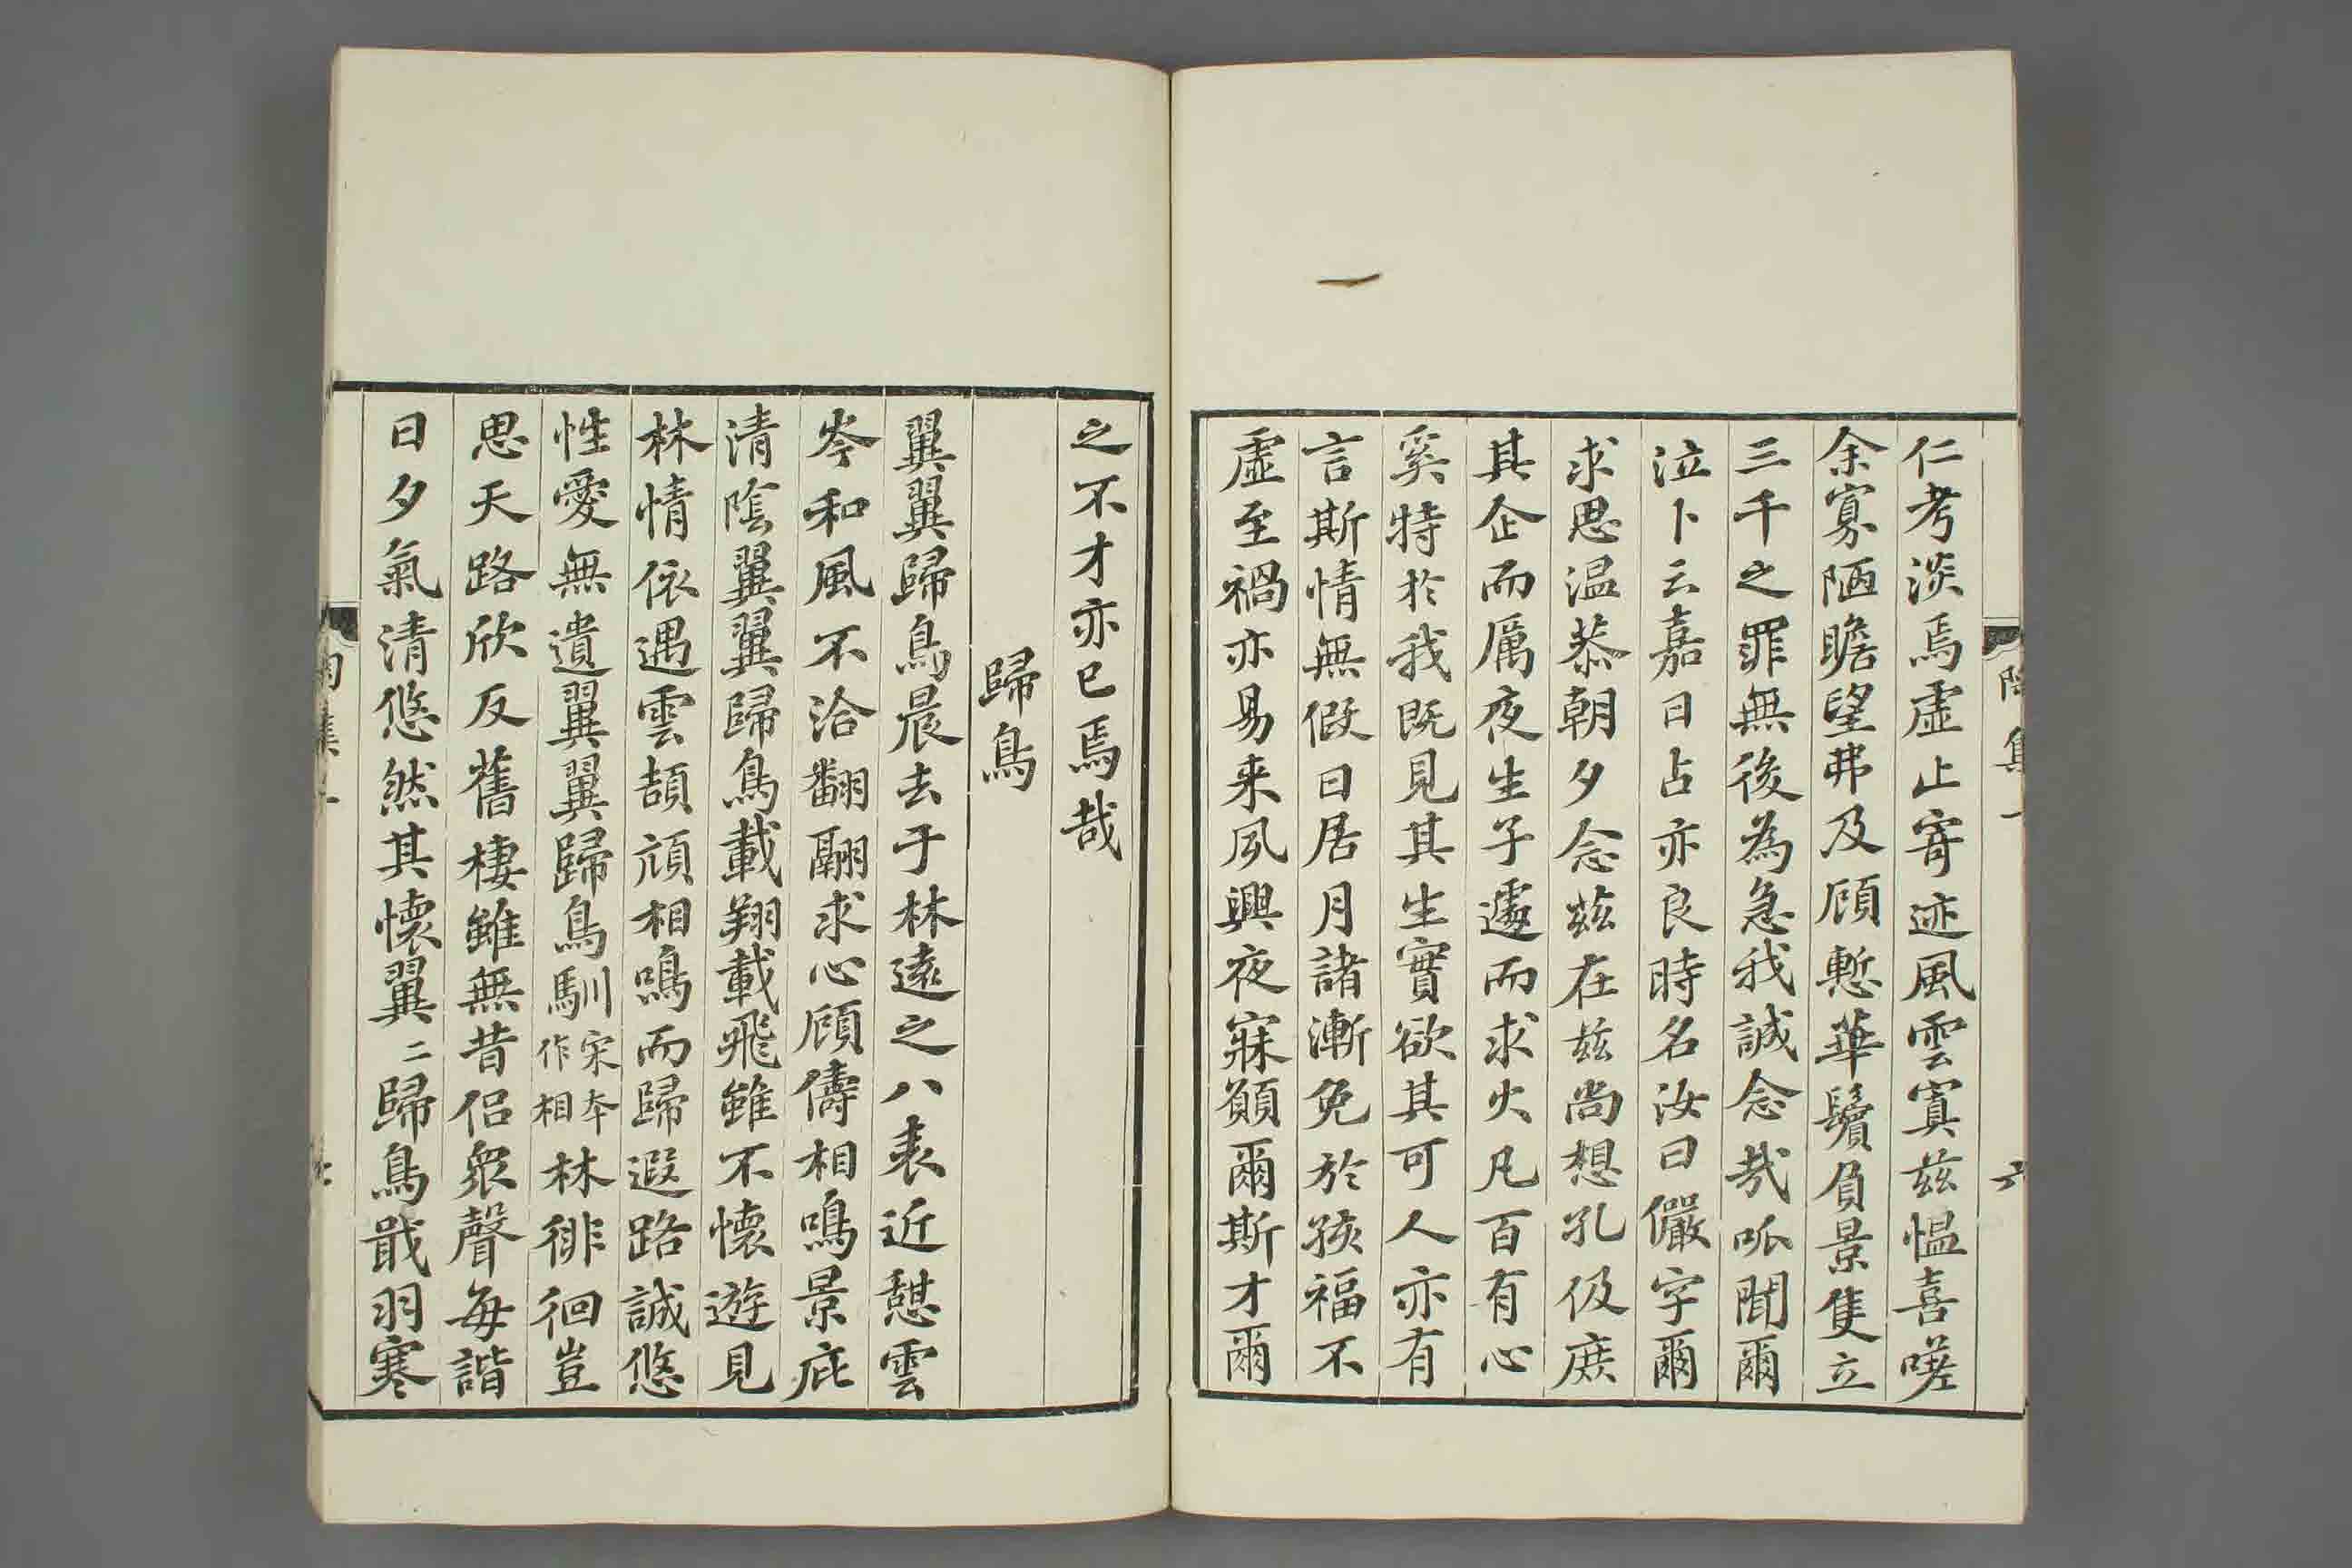 仁考淡焉虛止寄迹風雲寘茲愠喜嗟
余寡陋瞻望弗及顧慙華鬢負景隻立
三千之罪無後為急我誠念哉呱聞爾
泣卜云嘉日占亦良時名汝曰儼字爾
求思温恭朝夕念茲在茲尚想孔伋庶
其企而厲夜生子遽而求火凡百有心
奚特於我既見其生實欲其可人亦有
言斯情無假日居月諸漸免於孩福不
虛至禍亦易来夙興夜寐願爾斯才爾
之不才亦已焉哉
歸鳥
翼翼歸鳥晨去于林遠之八表近憩雲
岑和風不洽翻翮求心顧儔相鳴景庇
清陰翼翼歸鳥載翔載飛雖不懷遊見
林情依遇雲頡頏相鳴而歸遐路誠悠
性愛無遺翼翼歸鳥馴宋本作相林徘徊豈
思天路欣反舊棲雖無昔侣衆聲每諧
日夕氣清悠然其懷翼二歸鳥戢羽寒